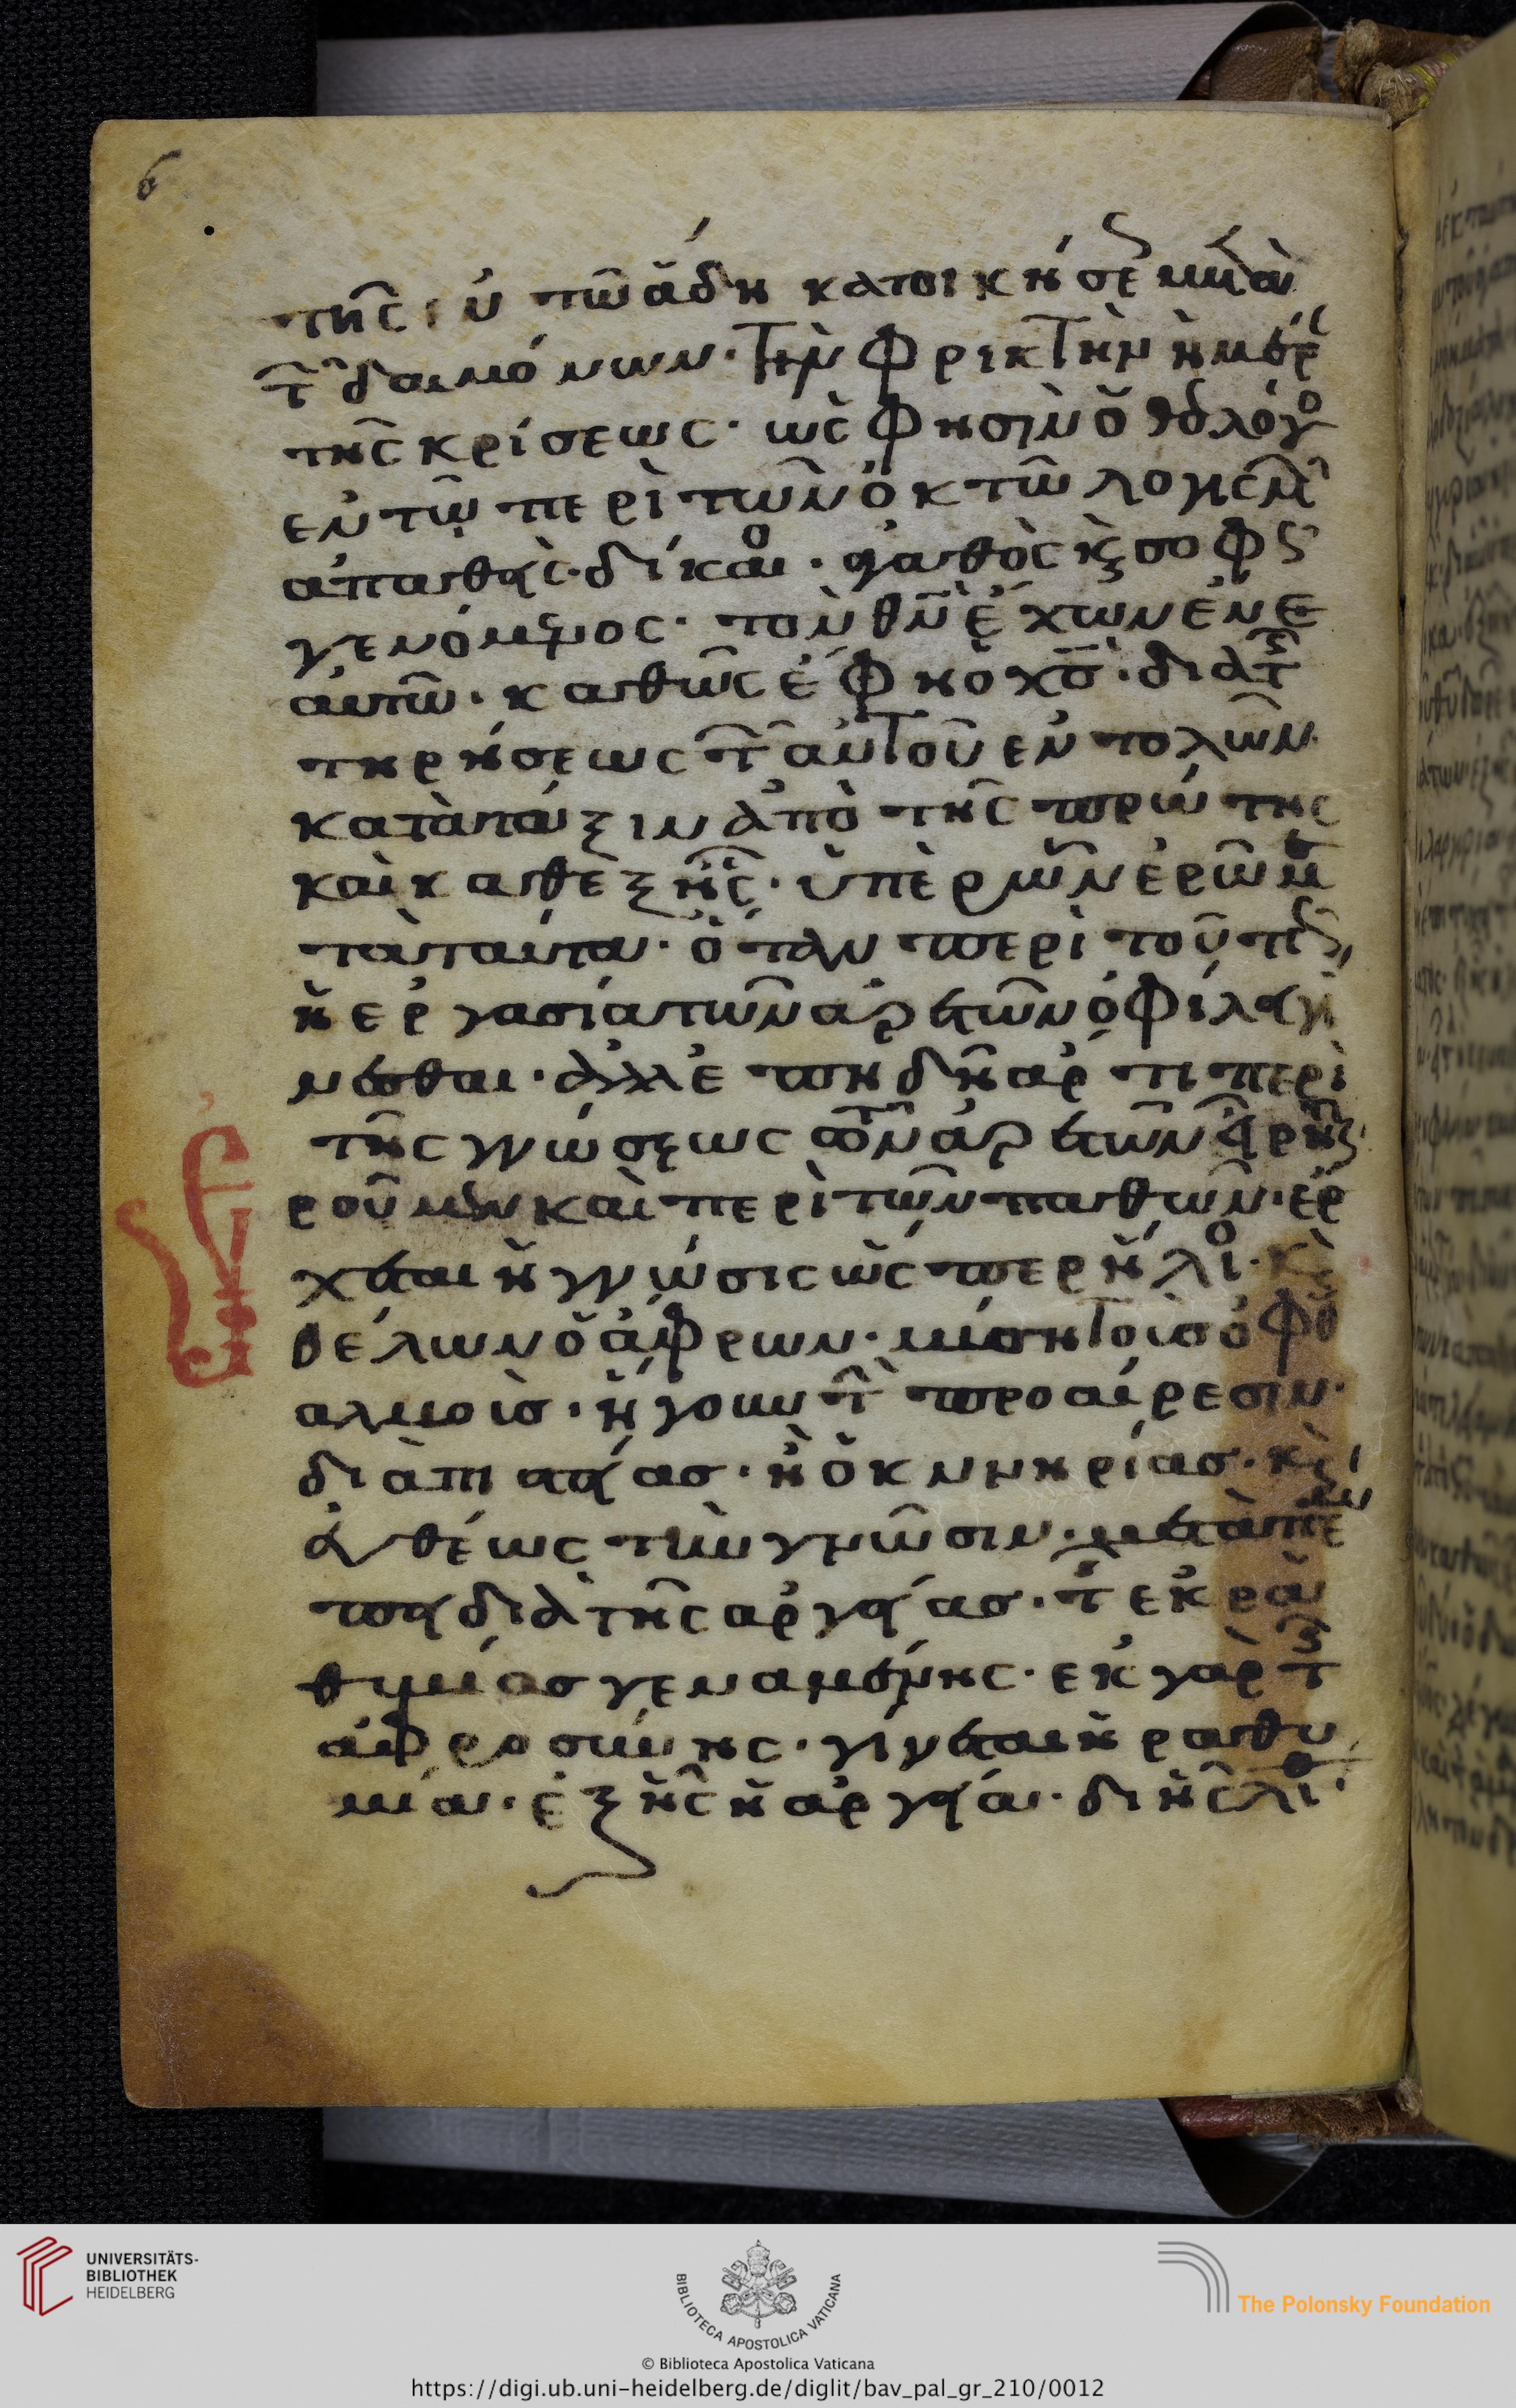 6
τῆς ἐν τῷ ἅδῃ κατοικήσε
τ δαιμόνων· τὴν φρικτὴν ἡμέρ
τῆς κρίσεως· ὡς φησὶν ὁ θεολόγο
ἐν τῷ περὶ τῶν ὀκτὼ λογισμ
ἀπαθὴς· δίκαιο· ἀγαθὸς κ σοφς
γενόμενος· τὸν θν ἔχων ἐν ε
αυτῷ· καθὼς ἔφη ὁ χς· διὰ τ
τηρήσεως τ αὐτοῦ ἐντολῶν
κατὰ τάξιν ἀπὸ τῆς πρώτης
καὶ καθεξῆς· ὑπὲρ ὧν ἐρῶμ
τὰ τοιαῦτα· ὅταν περὶ τοῦ π
ἡ ἐργασία τῶν ἀρετῶν ὀφίλει γί
νεσθαι· ἀλλ' ἐπειδὴ ἄρτι περὶ
τῆς γνώσεως τῶν ἀρετῶν
ροῦμεν καὶ περὶ τῶν παθῶν· ἔρ
χεται ἡ γνῶσις ὡς περ ἥλιο· κ
θέλων ὁ ἄφρων· μύση τοὶσ ὀφθ
αλμοὶσ· ἤγουν τ προαίρεσιν·
διὰ πιστίασ· ἢ ὀκνηρίασ· κ
εὐθέως τὴν γνῶσιν· μετὰ πέμ
πει διὰ τῆς ἀργείασ· τ ἐκ ρα
θυμίασ γεναμένης· ἐκ γὰρ τ
ἀφροσύνης· γίνεται ἡ ραθυ
μία· ἐξ ἧς ἡ ἀργεία· δι ἧς λή
UNIVERSITÄTS-
BIBLIOTHEK
HEIDELBERG
BIBLIOTECA APOSTOLICA VATICANA
The Polonsky Foundation
© Biblioteca Apostolica Vaticana
https://digi.ub.uni-heidelberg.de/diglit/bav_pal_gr_210/0012